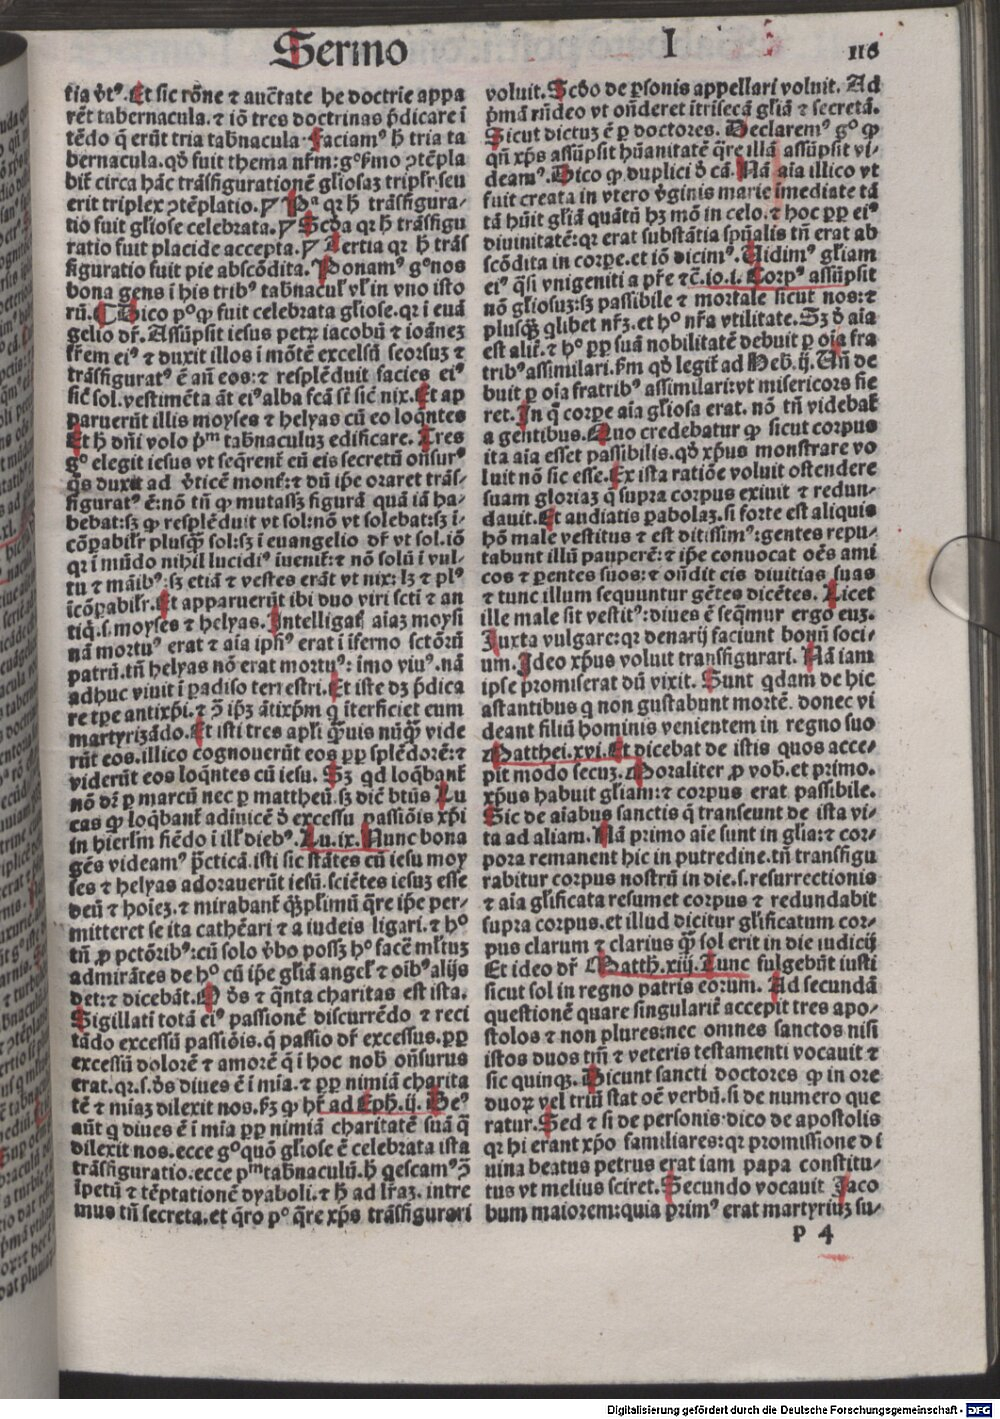 Sermo I 116
tia ṽtꝰ. Et sic rõne ⁊ auc̃tate he doctrie appa
rẽt tabernacula. ⁊ iõ tres doctrinas p̃dicare ĩ
tẽdo q̃ erũt tria tab̃nacula. Faciamꝰ h̃ tria ta
bernacula. qð fuit thema nr̃m: gº p̃mo ↄtẽpla
bit̃ circa hãc trãsfigurationẽ gl̃iosaʒ tripl̃r. seu
erit triplex ↄtẽplatio. ¶ Pª qꝛ h̃ trãsfigura⸗
tio fuit gl̃iose celebrata. ¶ Scða qꝛ h̃ trãsfigu
ratio fuit placide accepta. ¶ Tertia qꝛ h̃ trãs
figuratio fuit pie abscõdita. Ponamꝰ gº nos
bona gens ĩ his tribꝰ tabnacul̃ vl̃ in vno isto
rũ. ¶ Dico pº ꝙ fuit celebrata gl̃iose. qꝛ i euã
gelio dr̃. Assũpsit iesus petrꝝ iacobũ ⁊ ioãneʒ
fr̃em eiꝰ ⁊ duxit illos ĩ mõtẽ excelsũ seorsuʒ ⁊
trãsfiguratꝰ ẽ añ eos: ⁊ resplẽduit facies eiꝰ
sic̃ sol. vestimẽta ãt eiꝰ alba fcã st̃ sic̃ nix. Et ap
paruerũt illis moyses ⁊ helyas cũ eo loqntes
Et h̃ dñi volo pᵐ tab̃naculuʒ edificare. Tres
gº elegit iesus vt seq̃rent̃ eũ eis secretũ oñsurꝰ
q̃s duxit ad ṽticẽ mont̃: ⁊ dũ ip̃e oraret trãs⸗
figuratꝰ ẽ: nõ tñ ꝙ mutassʒ figurã quã iã ha⸗
bebat: sʒ ꝙ resplẽduit vt sol: nõ vt solebat: sʒ ĩ⸗
cõꝑabil̃r plusq̃ʒ sol: sʒ ĩ euangelio dr̃ vt sol. iõ
qꝛ ĩ mũdo nihil lucidiꝰ iuenit̃: ⁊ nõ solũ ĩ vul⸗
tu ⁊ mãibꝰ: sʒ etiã ⁊ vestes erãt vt nix: lʒ ⁊ plꝰ
ĩcõꝑabil̃r. Et apparuerũt ibi duo viri scti ⁊ an
tiq̃. s. moyses ⁊ helyas. Intelligas̃ aiaʒ moysi
nã mortuꝰ erat ⁊ aia ip̃iꝰ erat ĩ ĩferno sctõrũ
patrũ. tñ helyas nõ erat mortuꝰ: imo viuꝰ. nã
adhuc viuit ĩ ꝑadiso terrestri. Et iste dʒ p̃dica
re tꝑe antixp̃i. ⁊ ↄ̃ ip̃ʒ ãtixp̃m q̃ ĩterficiet eum
martyrizãdo. Et isti tres apl̃i q̃uis nũq̃ʒ vide
rũt eos. illico cognouerũt eos ꝓp splẽdorẽ: ⁊
viderũt eos loqntes cũ iesu. Sʒ qd loqbant̃
nõ dr̃ ꝑ marcũ nec ꝑ mattheũ. sʒ diẽ btũs Lu
cas ꝙ loqbant̃ adinuicẽ ð excessu passiõis xp̃i
in hierl̃m fiẽdo ĩ ill̃ diebꝰ. Lu. ix. Nunc bona
gẽs videamꝰ p̃cticã. isti sic stãtes cũ iesu moy
ses ⁊ helyas adorauerũt iesũ. sciẽtes iesuʒ esse
deũ ⁊ hoieʒ. ⁊ mirabant̃ q̃ʒplimũ q̃re ip̃e per⸗
mitteret se ita cathẽari ⁊ a iudeis ligari. ⁊ hº
tñ ꝓ pctõribꝰ: cũ solo ṽbo possʒ hº facẽ ml̃tuʒ
admirãtes de hº cũ ip̃e gl̃iã angel̃ ⁊ oibꝰ alijs
det: ⁊ dicebãt. O ðs ⁊ q̃nta charitas est ista.
Sigillati totã eiꝰ passionẽ discurrẽdo ⁊ reci
tãdo excessũ passiõis. q̃ passio dr̃ excessus. ꝓp
excessũ dolorẽ ⁊ amorẽ q̃ ĩ hoc nob̃ oñsurus
erat. qꝛ. s. ðs diues ẽ ĩ mia. ⁊ ꝓp nimiã charita
tẽ ⁊ miaʒ dilexit nos. fʒ ꝙ hr̃ ad Eph̃. ij. Deꝰ
aũt q̃ diues ẽ ĩ mia ꝓp nimiã charitatẽ suã q̃
dilexit nos. ecce gº quõ gl̃iose ẽ celebrata ista
trãsfiguratio. ecce pᵐ tab̃naculũ. h̃ qescamꝰ ↄ̃
ĩpetũ ⁊ tẽptationẽ dyaboli. ⁊ h̃ ad lr̃aʒ. intre
mus tñ secreta. et q̃ro pº q̃re xp̃s trãsfigurari
voluit. Scðo de ꝑsonis appellari voluit. Ad
p̃mã rñdeo vt oñderet ĩtrisecã gl̃iã ⁊ secretã.
Sicut dictuʒ ẽ ꝑ doctores. Declaremꝰ gº ꝙ
qñ xp̃s assũpsit hũanitatẽ q̃re illã assũpsit vi⸗
deamꝰ. Dico ꝙ duplici ð cã. Nã aia illico vt
fuit creata in vtero ṽginis marie ĩmediate tã
tã hũit gl̃iã quãtũ hʒ mõ in celo. ⁊ hoc ꝓp eiꝰ
diuinitatẽ: qꝛ erat substãtia spũalis tñ erat ab
scõdita in corꝑe. et iõ dicimꝰ. Vidimꝰ gl̃iam
eiꝰ q̃si vnigeniti a pr̃e ⁊c̃. io. i. Corpꝰ assũpsit
nõ gl̃iosuʒ: sʒ passibile ⁊ mortale sicut nos: ⁊
plusq̃ʒ q̃libet nr̃ʒ. et hº nr̃a vtilitate. Sʒ ð aia
est alit̃. ⁊ hº ꝓp suã nobilitatẽ debuit ꝑ oia fra
tribꝰ assimilari. fm qð legit̃ ad Heb̃. ij. Vñ de
buit ꝑ oia fratribꝰ assimilari: vt misericors fie
ret. In q̃ corꝑe aia gl̃iosa erat. nõ tñ videbat̃
a gentibus. Quo credebatur ꝙ sicut corpus
ita aia esset passibilis. qð xp̃us monstrare vo
luit nõ sic esse. Ex ista ratiõe voluit ostendere
suam gloriaʒ q̃ supra corpus exiuit ⁊ redun⸗
dauit. Et audiatis ꝑabolaʒ. si forte est aliquis
hõ male vestitus ⁊ est ditissimꝰ: gentes repu⸗
tabunt illũ pauperẽ: ⁊ ip̃e conuocat oẽs ami
cos ⁊ ꝑentes suos: ⁊ oñdit eis diuitias suas
⁊ tunc illum sequuntur gẽtes dicẽtes. Licet
ille male sit vestitꝰ: diues ẽ seq̃mur ergo euʒ.
Juxta vulgare: qꝛ denarij faciunt bonũ soci⸗
um. Ideo xp̃us voluit transfigurari. Nã iam
ipse promiserat dũ vixit. Sunt qdam de hic
astantibus q̃ non gustabunt mortẽ. donec vi
deant filiũ hominis venientem in regno suo
Matthei. xvi. Et dicebat de istis quos acce⸗
pit modo secuʒ. Moraliter ꝓ vob̃. et primo.
xp̃us habuit gl̃iam: ⁊ corpus erat passibile.
Sic de aiabus sanctis q̃ transeunt de ista vi⸗
ta ad aliam. Nã primo aie sunt in gl̃ia: ⁊ cor⸗
pora remanent hic in putredine. tñ transfigu
rabitur corpus nostrũ in die. s. resurrectionis
⁊ aia gl̃ificata resumet corpus ⁊ redundabit
supra corpus. et illud dicitur gl̃ificatum cor⸗
pus clarum ⁊ clarius q̃ʒ sol erit in die iudicij
Et ideo dr̃ Matth̃. xiij. Tunc fulgebũt iusti
sicut sol in regno patris eorum. Ad secundã
questionẽ quare singularit̃ accepit tres apo⸗
stolos ⁊ non plures: nec omnes sanctos nisi
istos duos tm̃ ⁊ veteris testamenti vocauit ⁊
sic quinqʒ. Dicunt sancti doctores ꝙ in ore
duoꝝ vel triũ stat oẽ verbũ. si de numero que
ratur. Sed ⁊ si de personis. dico de apostolis
qꝛ hi erant xp̃o familiares: qꝛ promissione di
uina beatus petrus erat iam papa constitu⸗
tus vt melius sciret. Secundo vocauit Jaco
bum maiorem: quia primꝰ erat martyriuʒ su⸗
p 4
Digitalisierung gefördert durch die Deutsche Forschungsgemeinschaft - DFG